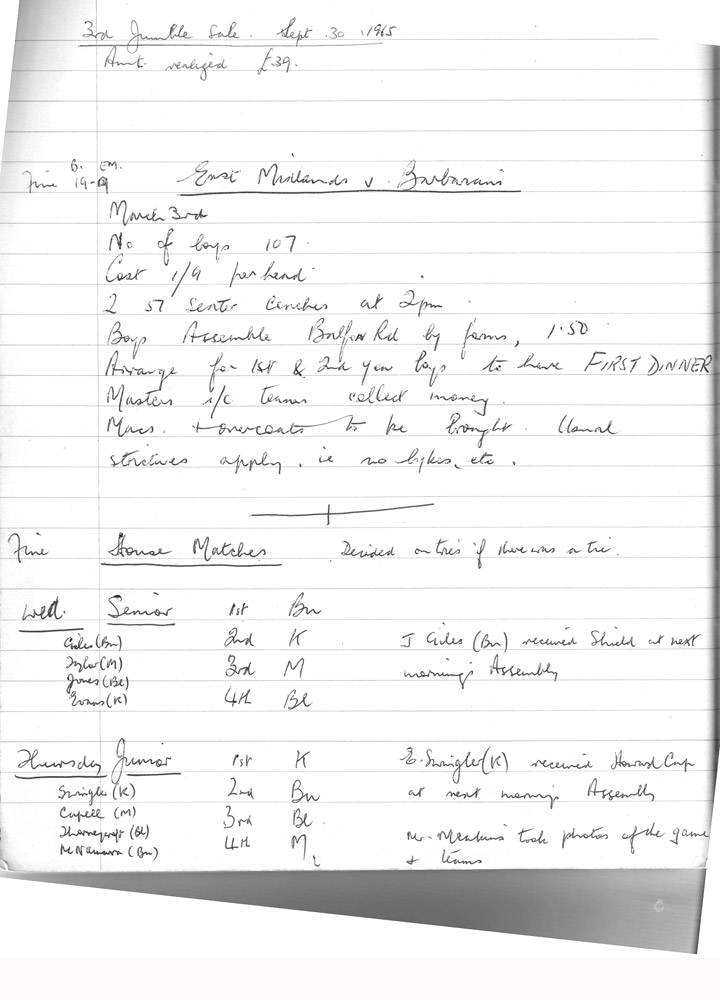 3rd Jumble Sale. Sept. 30. 1965
Amt. realized £39.
B. EM.
Fine 19-9 East Midlands v Barbarians
March 3rd
No of boys 107.
Cost 1/9 per head.
2 57 Seater Coaches at 2pm.
Boys Assemble Balfour Rd by forms, 1.50
Arrange for 1st & 2nd year boys to have FIRST DINNER
Masters i/c teams collect money.
Macs. + overcoats to be brought. Usual
strictures apply. ie no bykes, etc.
Fine House Matches Decided on tries if there was a tie.
Wed. Senior 1st Bn
Giles (Bn) 2nd K J Giles (Bn) received Shield at next
Taylor (M) 3rd M morning's Assembly
Jones (Bl)
Evans (K) 4th Bl
Thursday Junior 1st K E. Swingler (K) received Howard Cup
Swingler (K) 2nd Bn at next morning's Assembly
Capell (M) 3rd Bl.
Thorneycroft (Bl)
McNamara (Bn) 4th M Mr. Meakins took photos of the game
+ teams